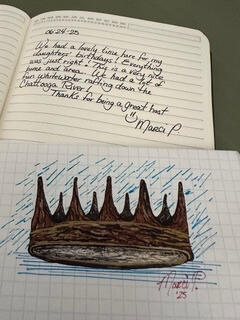 06-24-25
We had a lovely time here for my
daughters' birthdays! Everything
was just right! This is a very nice
home and area. We had a lot of
fun Whitewater rafting down the
Chattooga River!
Thanks for being a great host
Marci P.
Marci P.
'25